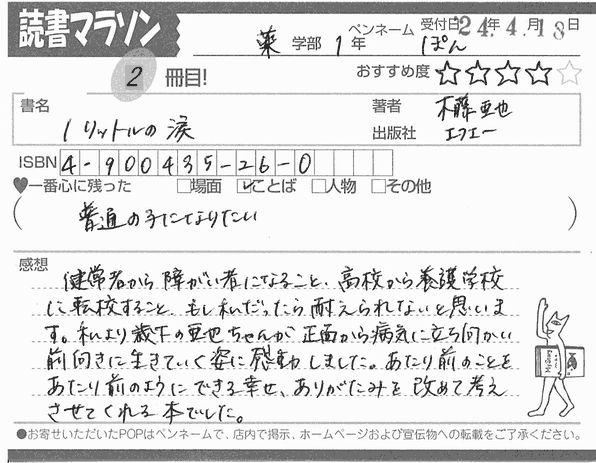 読書マラソン
薬 学部 1 年 ペンネーム ぽん 受付日 '24. 4. 月18日
2 冊目!
おすすめ度 ★★★★☆
書名 1リットルの涙
著者 木藤亜也
出版社 エフエー
ISBN 4-900435-26-0
♥一番心に残った □場面 ☑ことば □人物 □その他
(普通の子になりたい)
感想
健常者から障がい者になること、高校から養護学校
に転校すること、もし私だったら耐えられないと思いま
す。私より歳下の亜也ちゃんが正面から病気に立ち向かい
前向きに生きていく姿に感動しました。あたり前のことを
あたり前のようにできる幸せ、ありがたみを改めて考え
させてくれる本でした。
●お寄せいただいたPOPはペンネームで、店内で掲示、ホームページおよび宣伝物への転載をご了承ください。